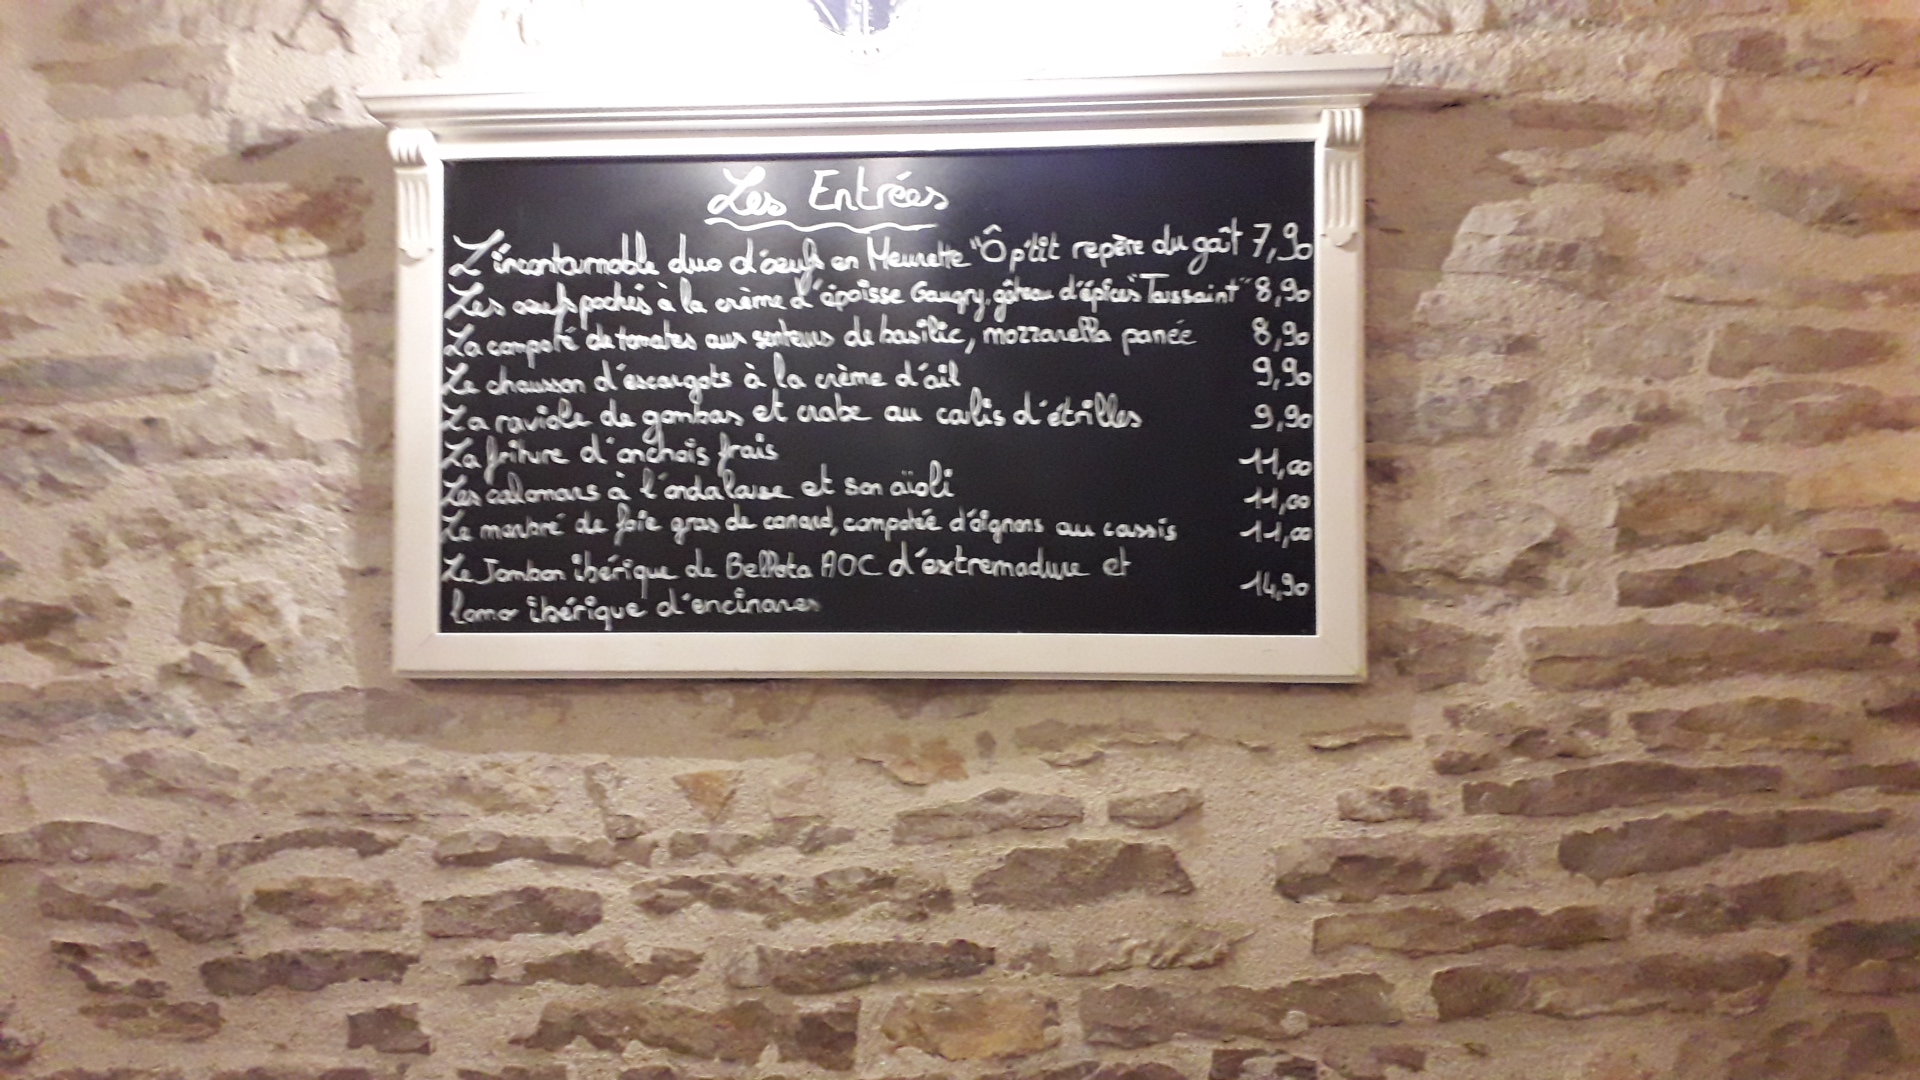 Les Entrées
L'incontournable duo d'oeufs en Meurette "Ô p'tit repère du gaît 7,90
Les oeufs pochés à la crème d'époisse Gaugry, gâteau d'épices Toussaint" 8,90
La compoté de tomates aux senteurs de basilic, mozzarella panée 8,90
Le chausson d'escargots à la crème d'ail 9,90
La raviole de gambas et crabe au coulis d'étrilles 9,90
La friture d'anchois frais 11,00
Les calamars à l'andalouse et son aïoli 11,00
Le marbré de foie gras de canard, compotée d'oignons au cassis 11,00
Le Jambon ibérique de Bellota AOC d'extremadure et 14,90
lomo ibérique d'encinares